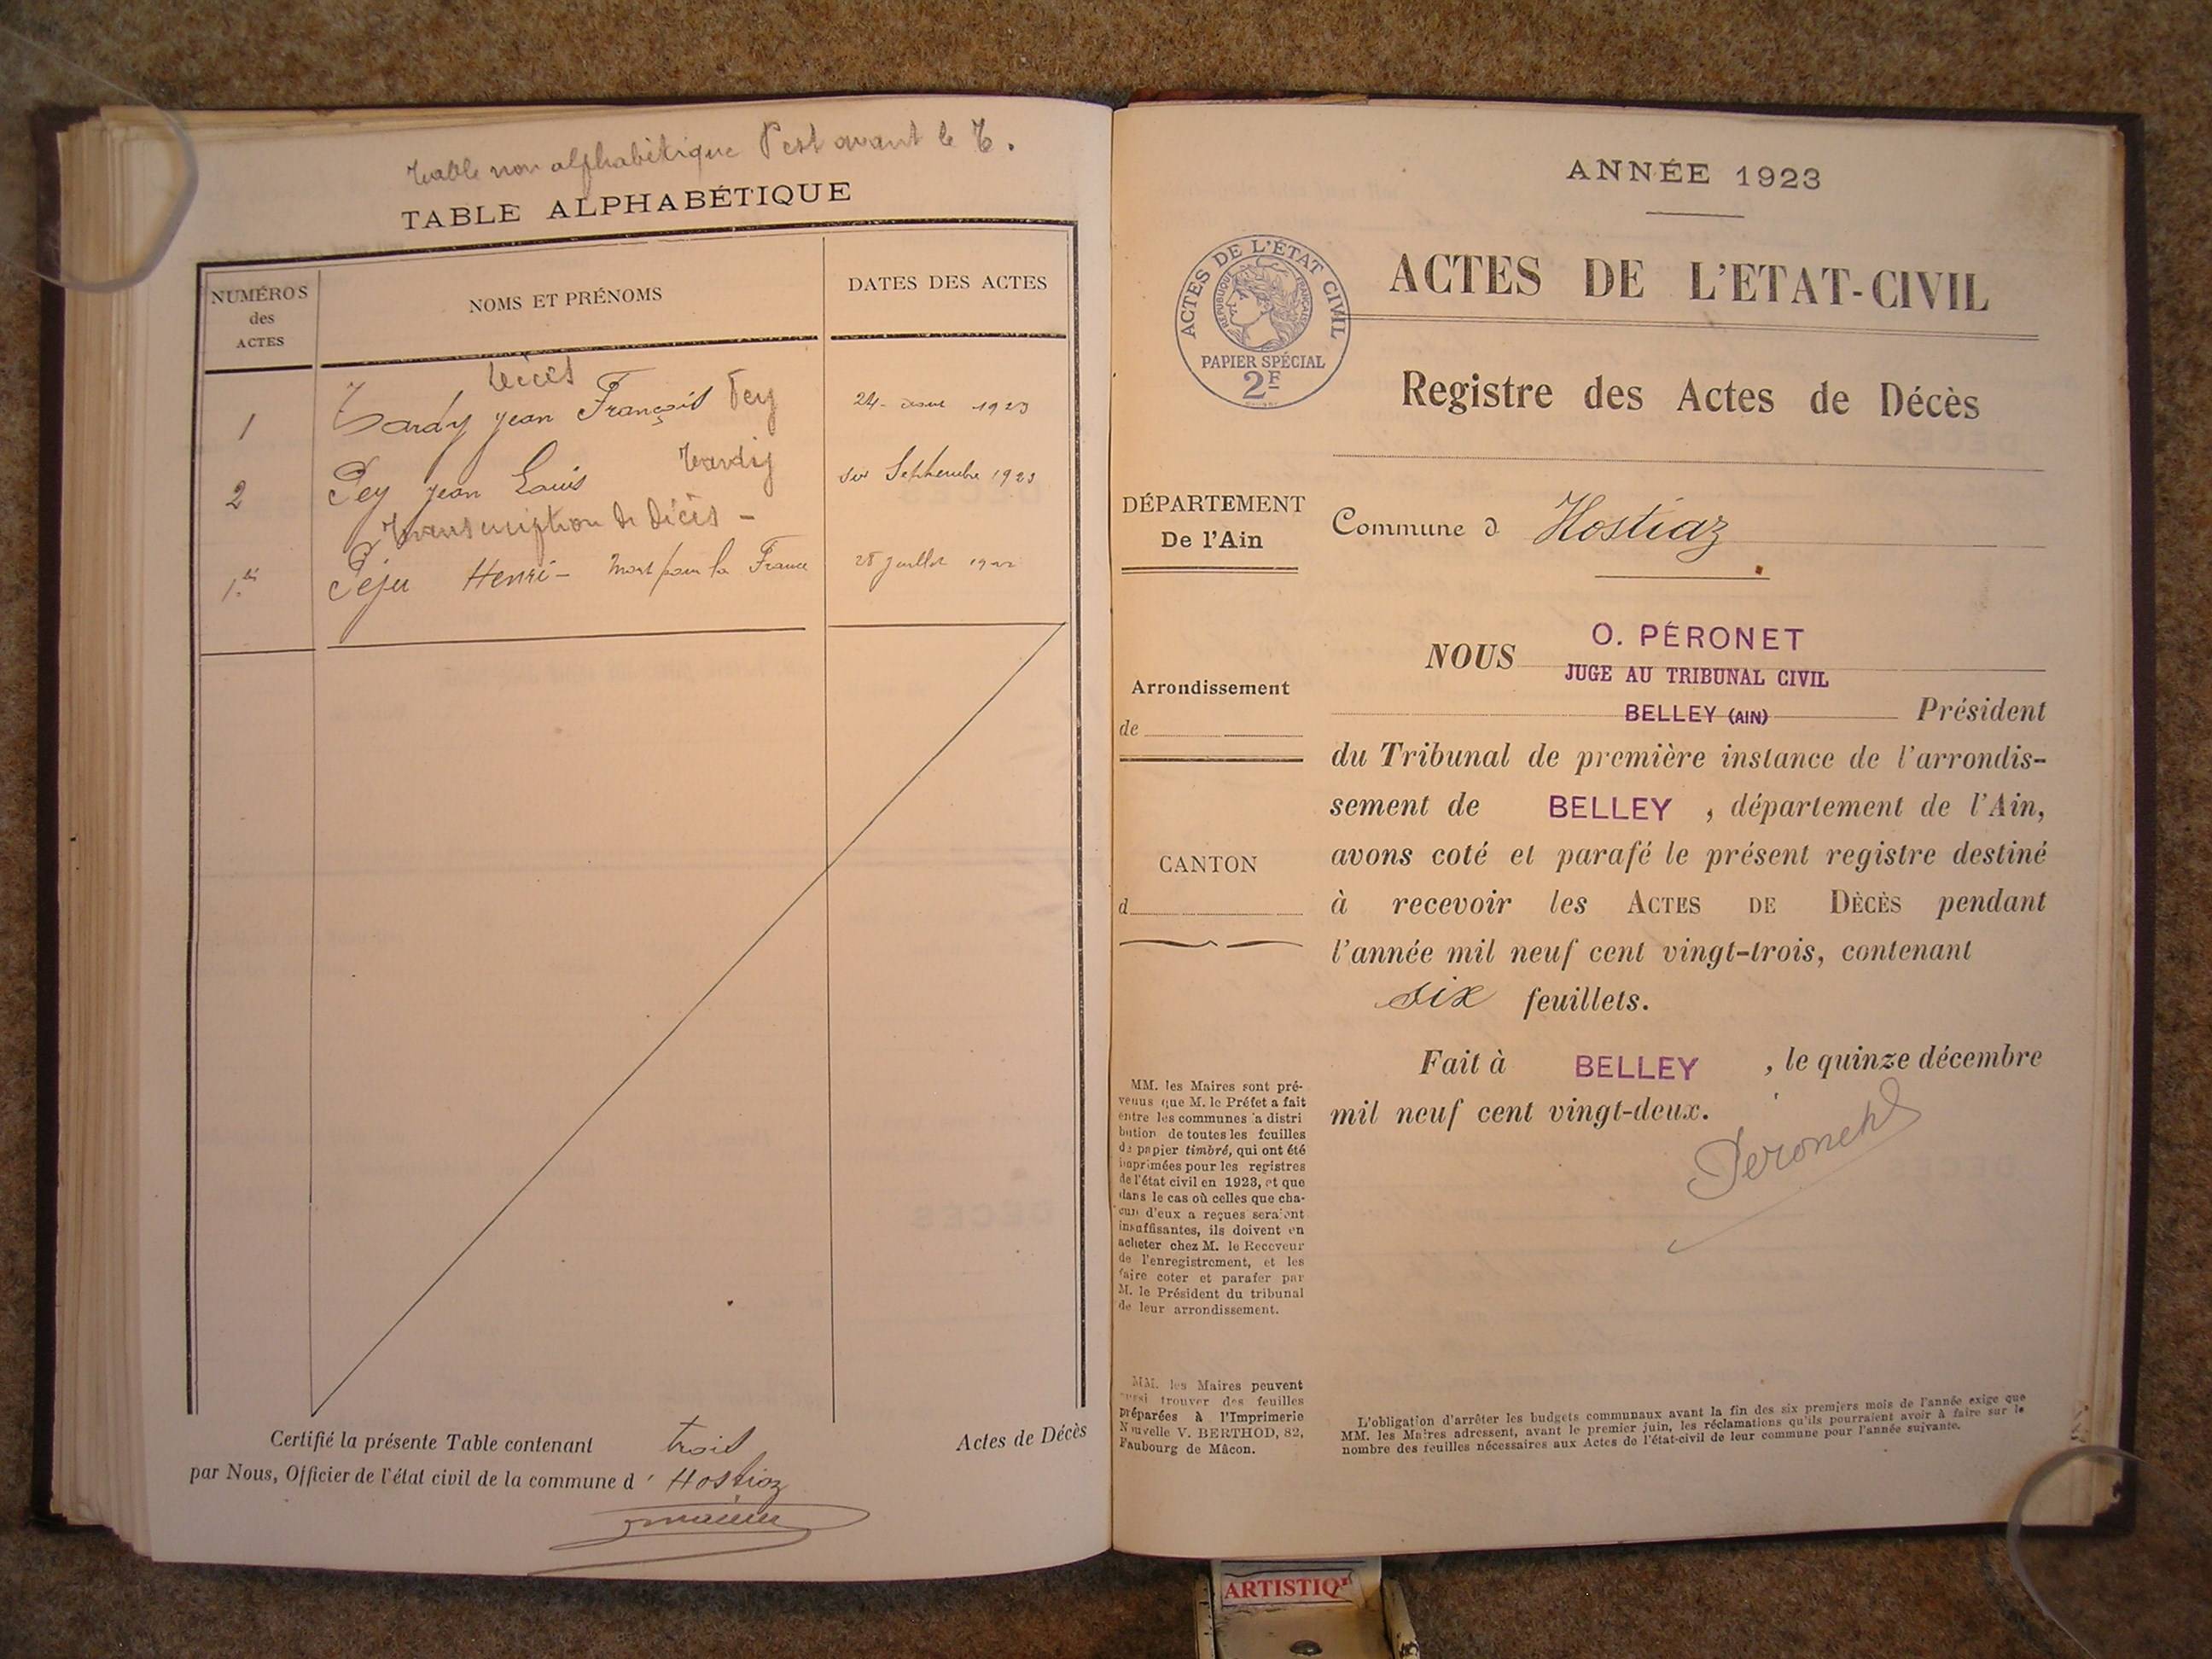 Table non alphabétique P est avant le T.
TABLE ALPHABÉTIQUE
NUMÉROS
des
ACTES
NOMS ET PRÉNOMS
DATES DES ACTES
Décès
1 Tardy jean François Pey 24 1923
2 Pey jean Louis Tardy Septembre 1923
Transcription de décès -
1.bis Péju Henri - Mort pour la France 28 juillet
Certifié la présente Table contenant trois Actes de Décès
par Nous, Officier de l'état civil de la commune d' Hostiaz
ANNÉE 1923
ACTES DE L'ÉTAT CIVIL
RÉPUBLIQUE FRANÇAISE
PAPIER SPÉCIAL
2F
ACTES DE L'ETAT-CIVIL
Registre des Actes de Décès
DÉPARTEMENT
De l'Ain
Commune d Hostiaz
Arrondissement
de
CANTON
d
NOUS O. PÉRONET
JUGE AU TRIBUNAL CIVIL
BELLEY (AIN) Président
du Tribunal de première instance de l'arrondis-
sement de BELLEY, département de l'Ain,
avons coté et parafé le présent registre destiné
à recevoir les ACTES DE DÉCÈS pendant
l'année mil neuf cent vingt-trois, contenant
six feuillets.
Fait à BELLEY, le quinze décembre
mil neuf cent vingt-deux.
Peronet
MM. les Maires sont pré-
venus que M. le Préfet a fait
entre les communes a distri
bution de toutes les feuilles
de papier timbré, qui ont été
imprimées pour les registres
de l'état civil en 1923, et que
dans le cas où celles que cha-
cun d'eux a reçues seraient
insuffisantes, ils doivent en
acheter chez M. le Receveur
de l'enregistrement, et les
faire coter et parafer par
M. le Président du tribunal
de leur arrondissement.
MM. les Maires peuvent
aussi trouver des feuilles
préparées à l'Imprimerie
Nouvelle V. BERTHOD, 82,
Faubourg de Mâcon.
L'obligation d'arrêter les budgets communaux avant la fin des six premiers mois de l'année exige que
MM. les Maires adressent, avant le premier juin, les réclamations qu'ils pourraient avoir à faire sur le
nombre des feuilles nécessaires aux Actes de l'état-civil de leur commune pour l'année suivante.
ARTISTIQ